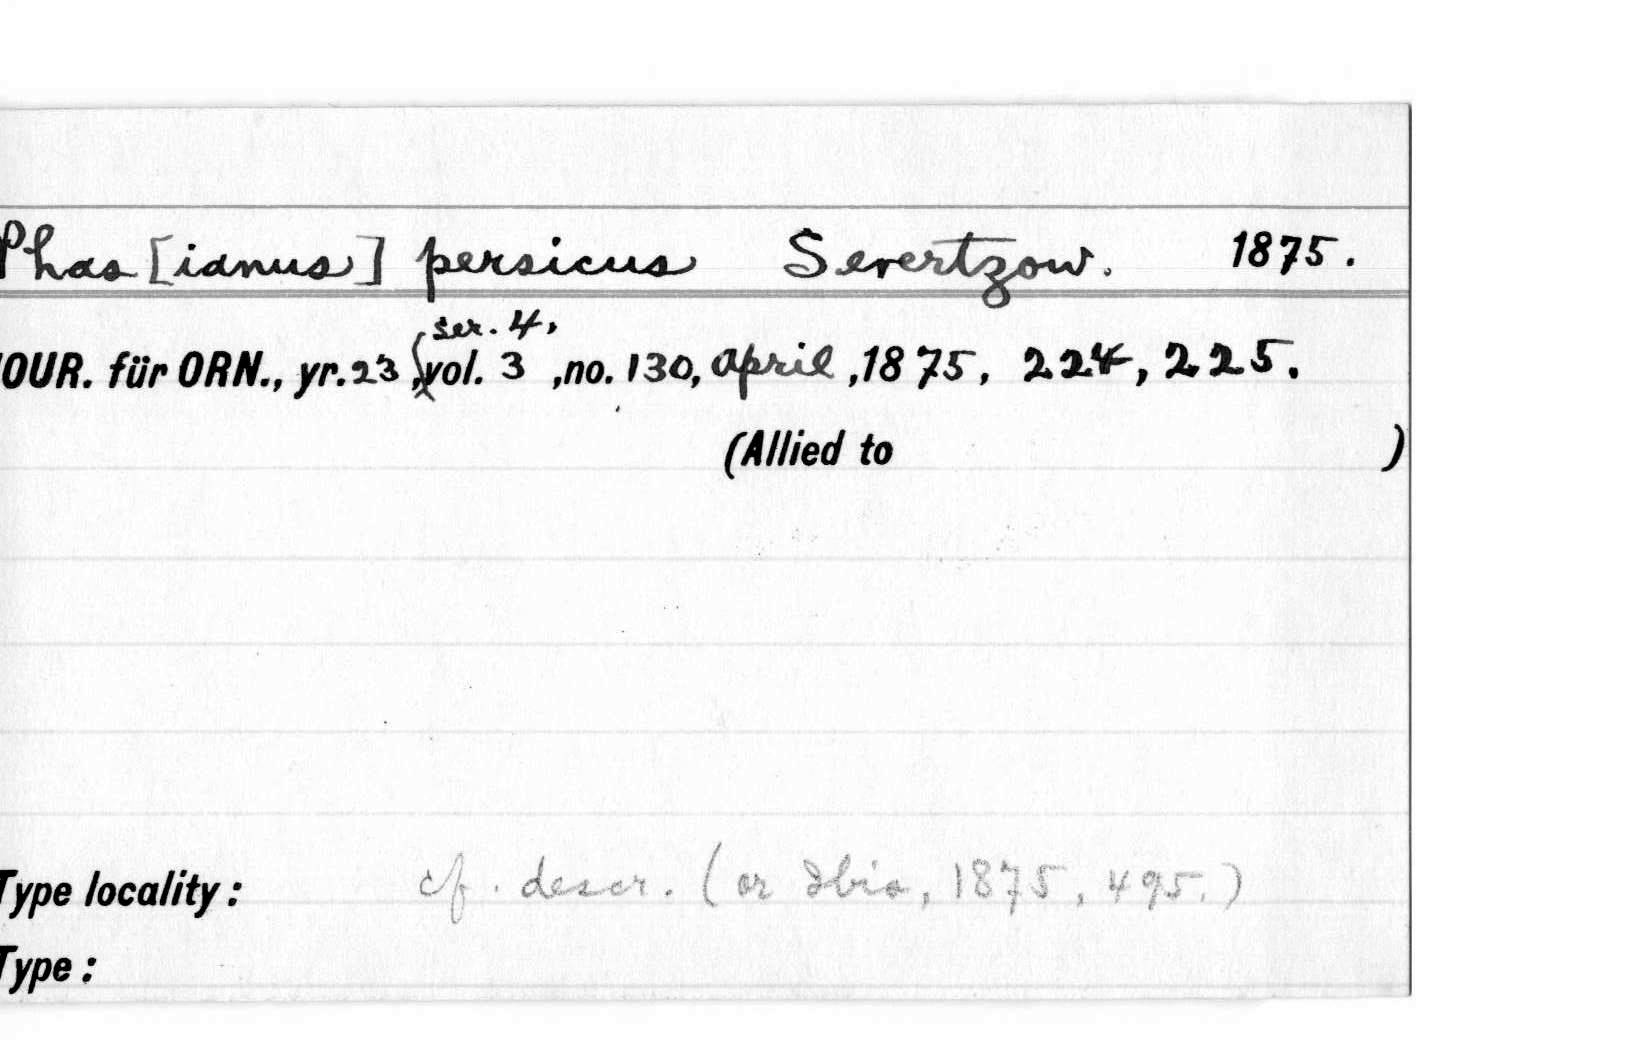 Phas[ianus] persicus Severtzow. 1875.
ser. 4,
JOUR. für ORN., yr. 23, vol. 3, no. 130, April, 1875, 224, 225.
(Allied to )
Type locality: cf. descr. (or Ibis, 1875, 495.)
Type: